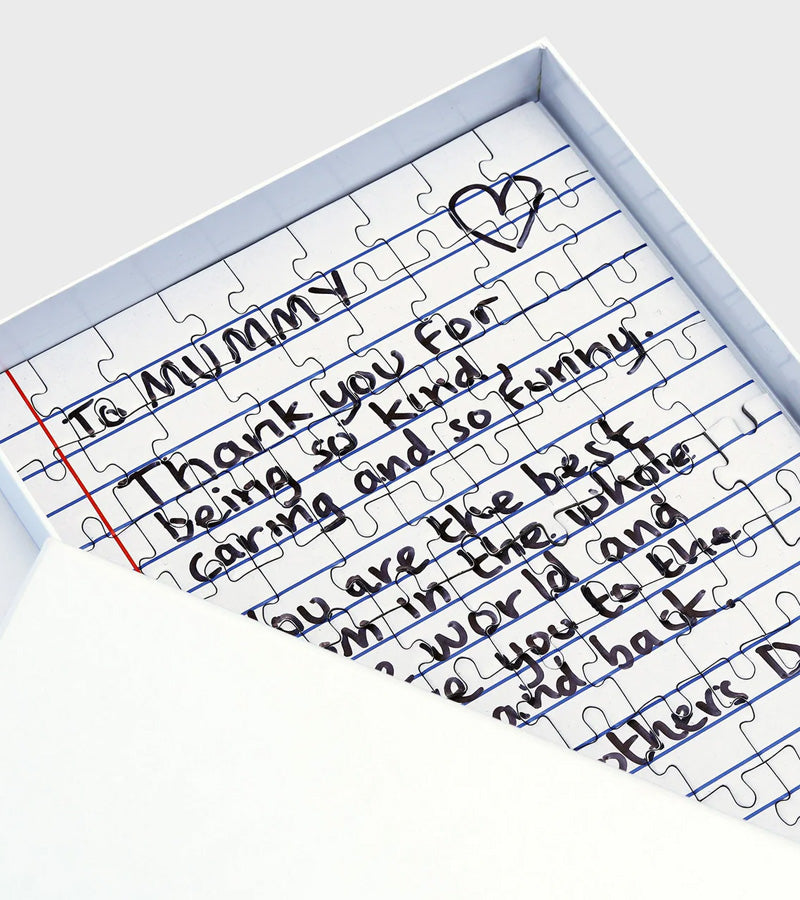 To MUMMY
Thank you for
being so kind,
caring and so funny.
You are the best
in the whole
world and
you to the
and back.